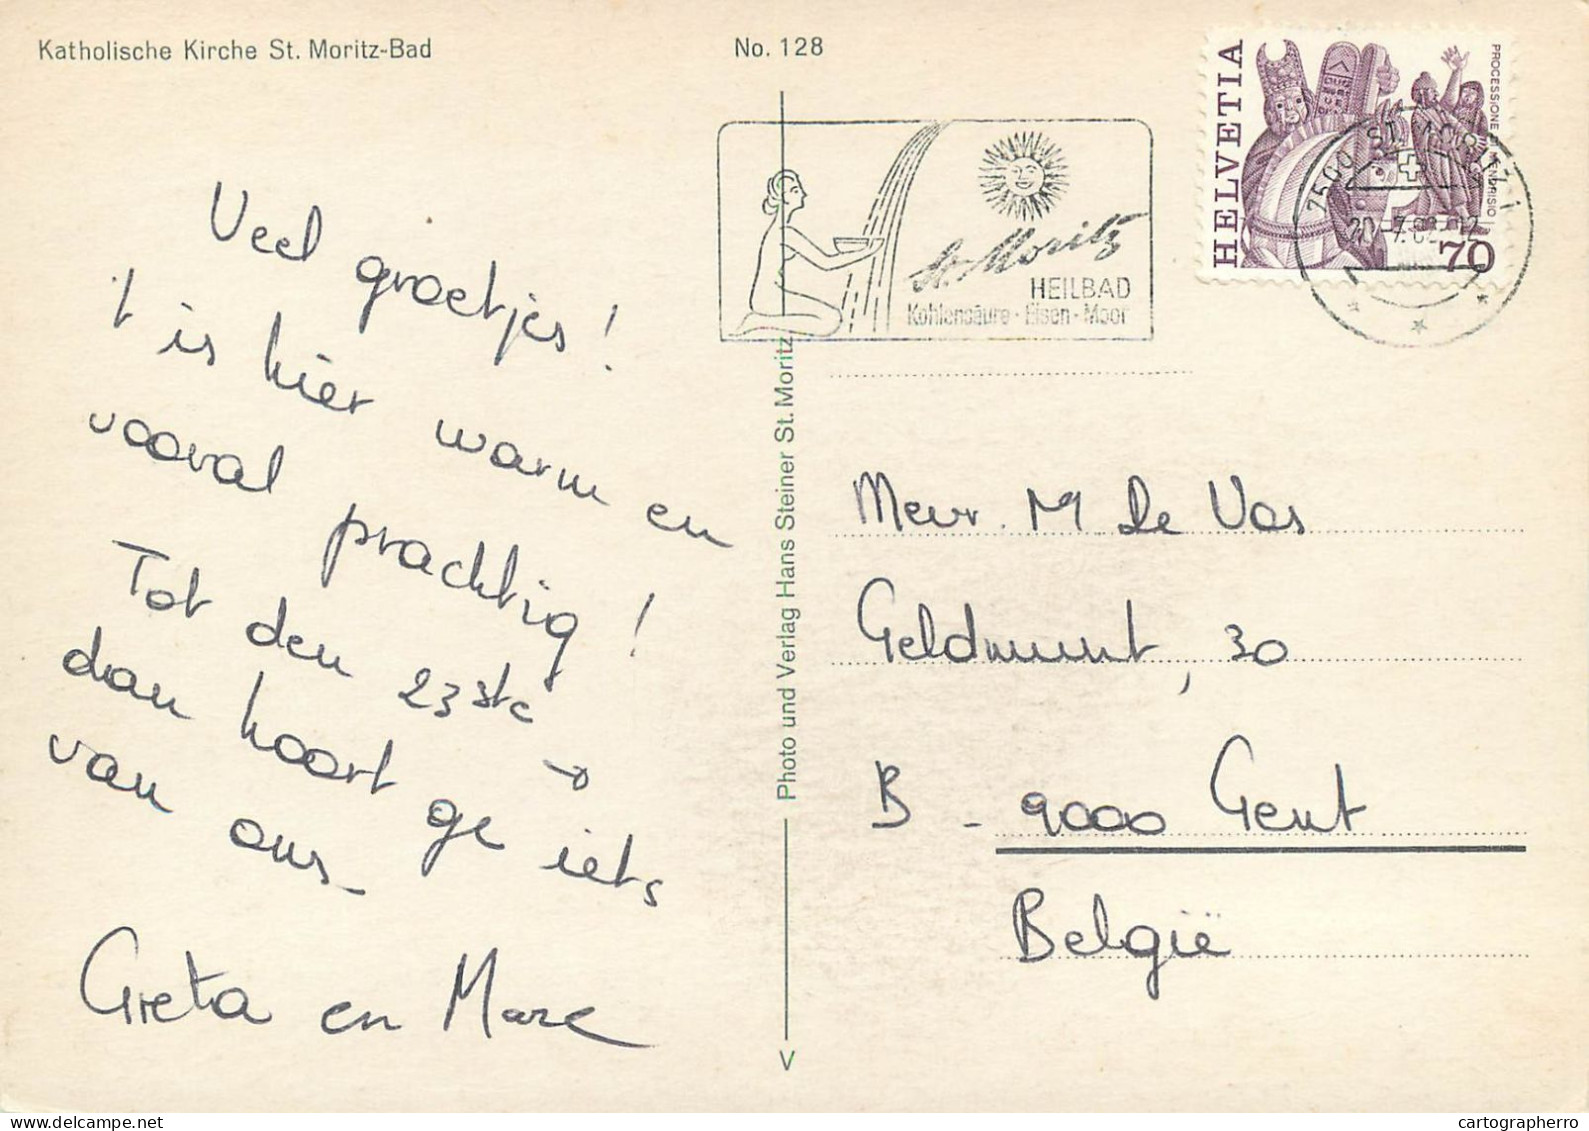 Katholische Kirche St. Moritz-Bad
No. 128
HELVETIA
PROCESSIONE MENDRISIO
70
7500 ST. MORITZ 1
St. Moritz
HEILBAD
Kohlensäure · Eisen · Moor
Veel groetjes!
't is hier warm en
vooral prachtig!
Tot den 23ste →
dan hoort ge iets
van ons -
Greta en Marc
Photo und Verlag Hans Steiner St. Moritz
V
Mevr. M De Vos
Geldmunt, 30
B - 9000 Gent
België
cartographerro